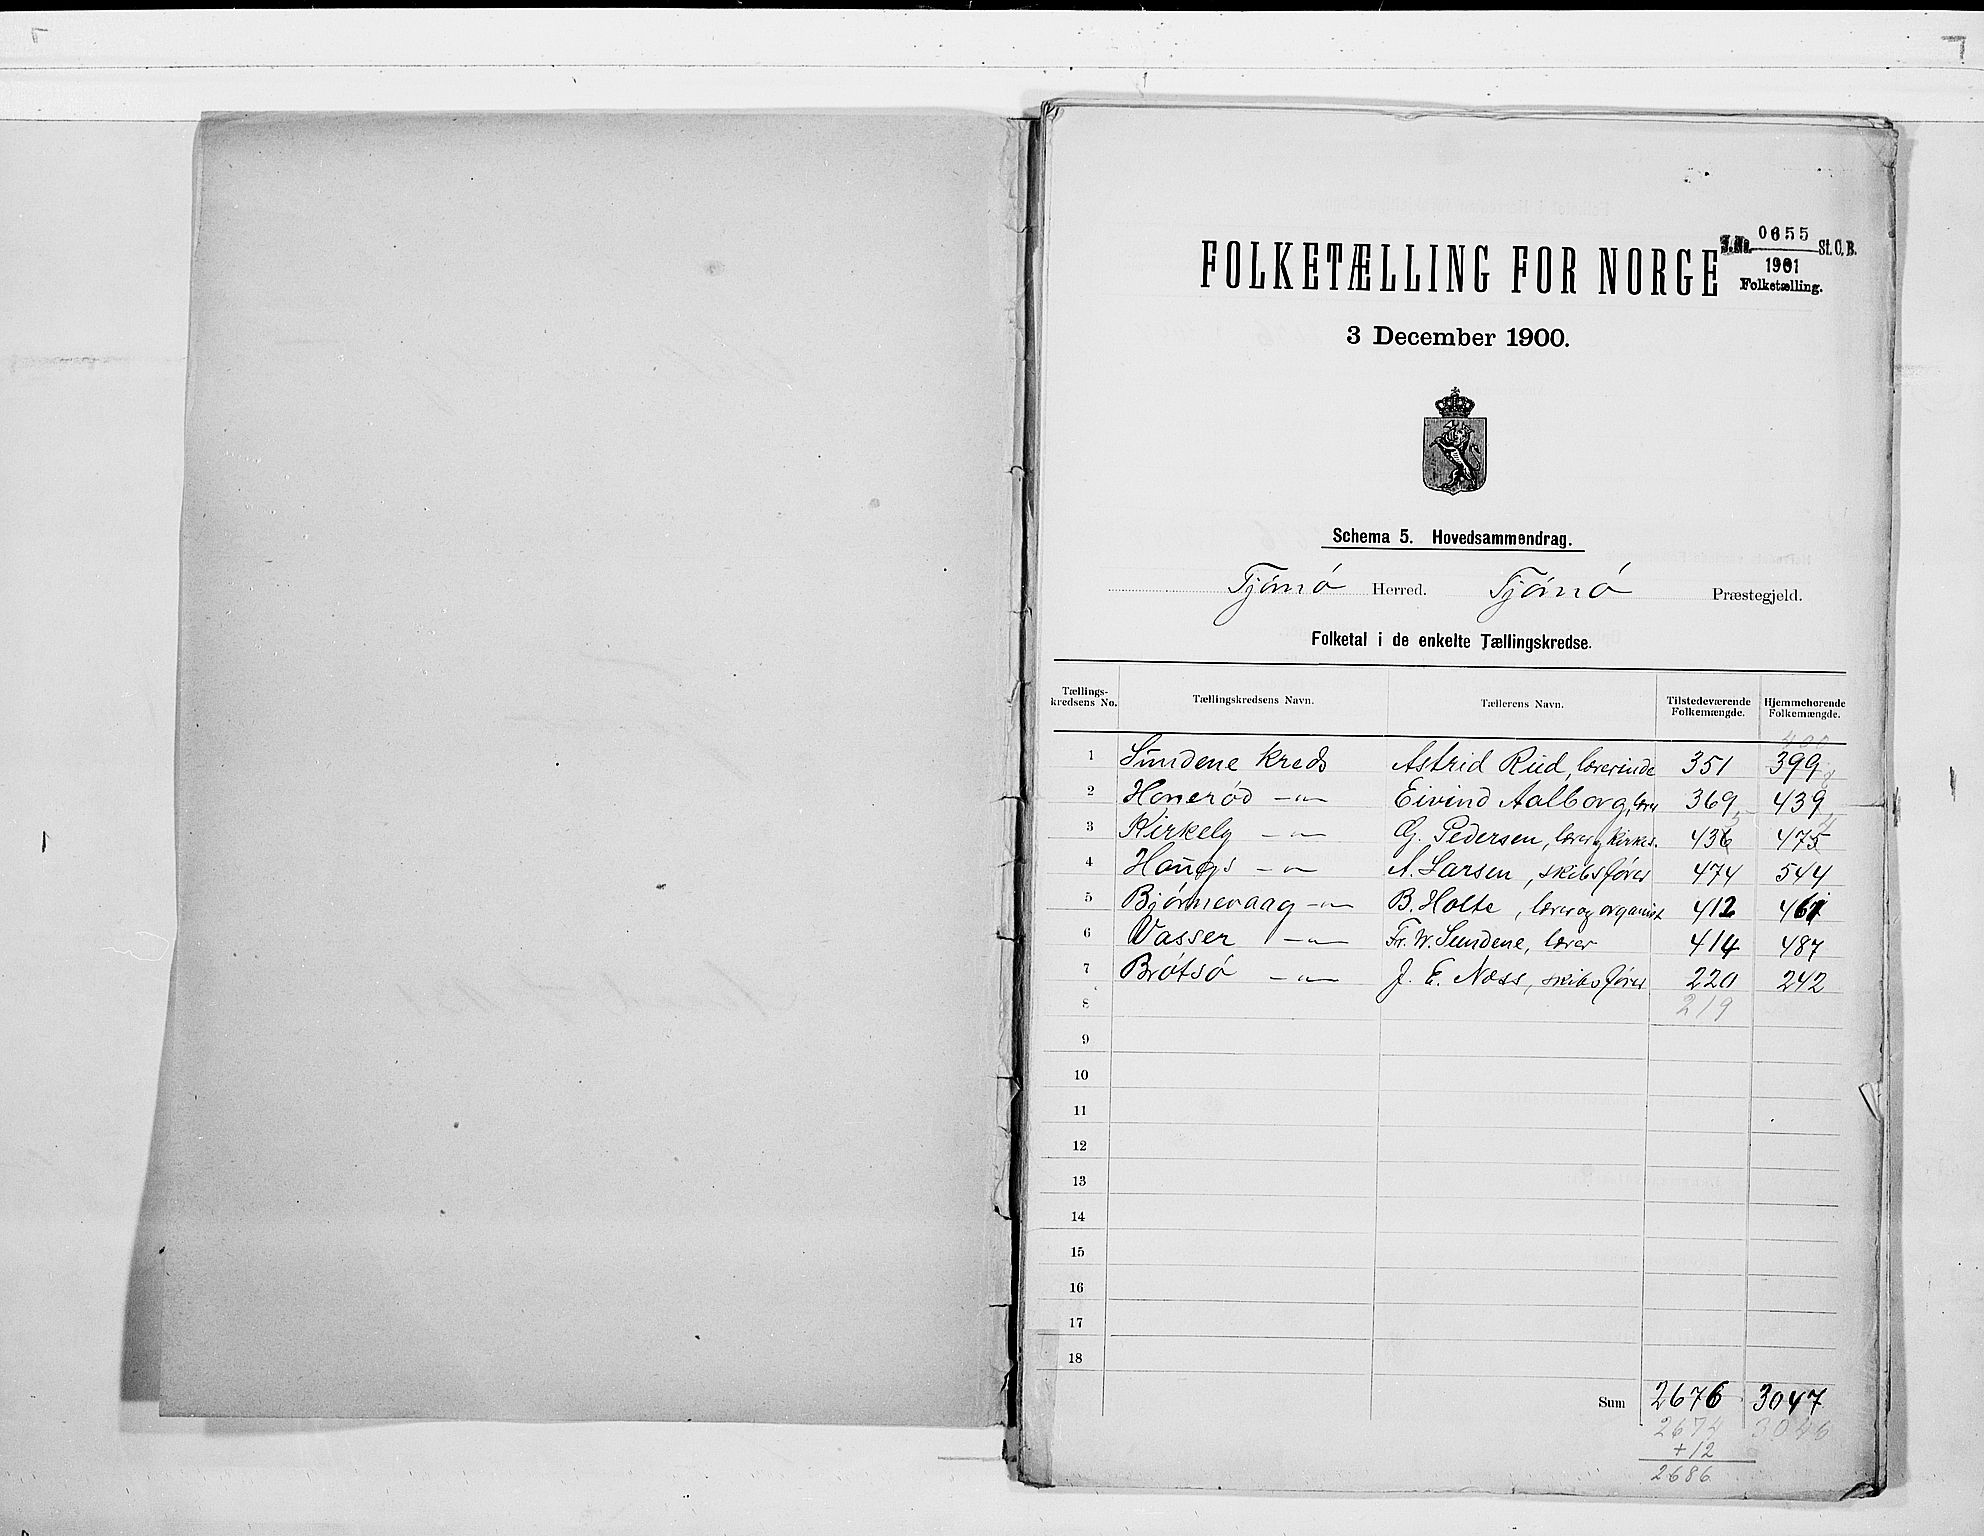 FOLKETÆLLING FOR NORGE
J.No. 0655 St. C. B.
1901
Folketælling.
3 December 1900.
Schema 5. Hovedsammendrag.
Tjømø Herred. Tjømø Præstegjeld.
Folketal i de enkelte Tællingskredse.
Tællings-kredsens No. Tællingskredsens Navn. Tællerens Navn. Tilstedeværende Folkemængde. Hjemmehørende Folkemængde.
400
1 Sundene kreds Astrid Rud, lærerinde 351 399
2 Honerød —"— Eivind Aalborg, lærer 369 439
3 Kirkely —"— G. Pedersen, lærer og kirkes. 436 475
4 Haugs —"— A. Larsen, skibsfører 474 544
5 Bjørnevaag —"— B. Holte, lærer og organist 412 461
6 Vasser —"— Fr. W. Sundene, lærer 414 487
7 Brøtsø —"— J. E. Næss, skibsfører 220 242
8 219
9
10
11
12
13
14
15
16
17
18
Sum 2676 3047
2674 3046
+12
2686